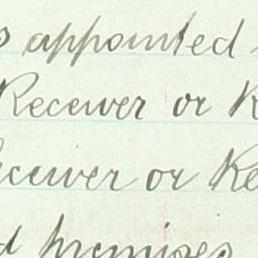 appointed
Receiver or
Receiver or Re
premises